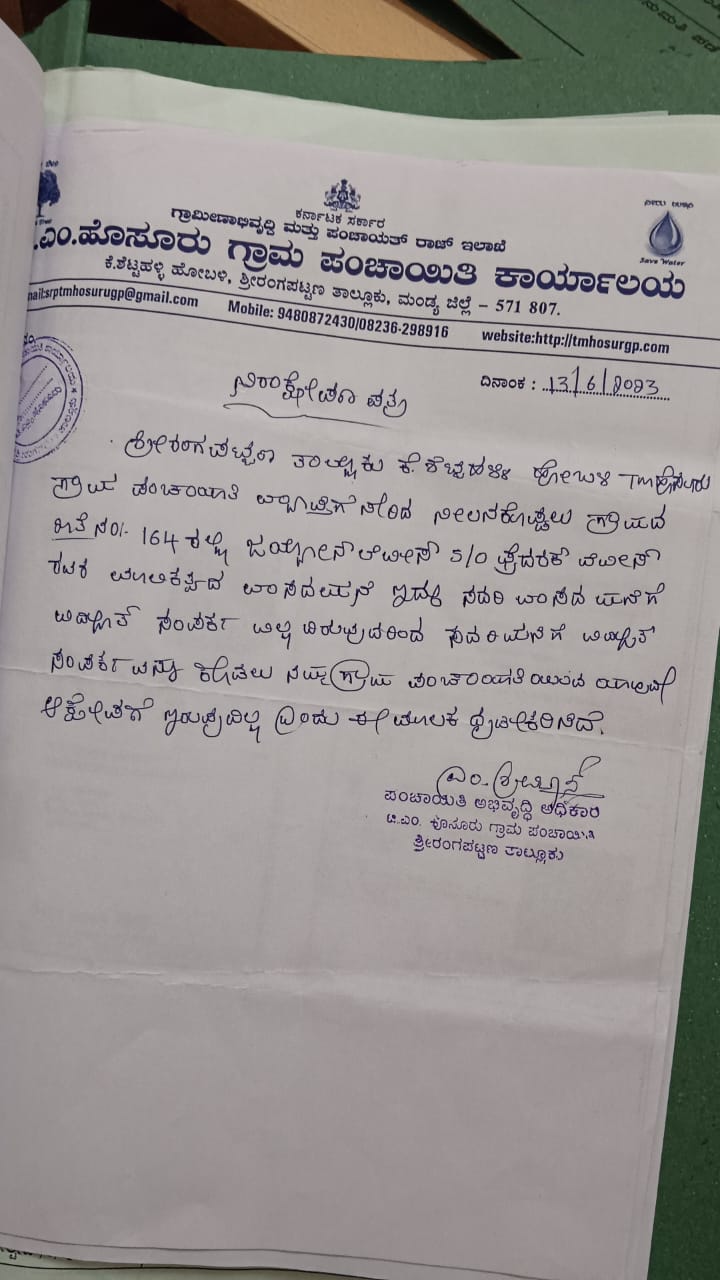 ಕರ್ನಾಟಕ ಸರ್ಕಾರ
ಗ್ರಾಮೀಣಾಭಿವೃದ್ಧಿ ಮತ್ತು ಪಂಚಾಯತ್ ರಾಜ್ ಇಲಾಖೆ
.ಎಂ.ಹೊಸೂರು ಗ್ರಾಮ ಪಂಚಾಯಿತಿ ಕಾರ್ಯಾಲಯ
Save Water
ಕೆ.ಶೆಟ್ಟಹಳ್ಳಿ ಹೋಬಳಿ, ಶ್ರೀರಂಗಪಟ್ಟಣ ತಾಲ್ಲೂಕು, ಮಂಡ್ಯ ಜಿಲ್ಲೆ - 571 807.
mail:srptmhosurugp@gmail.com Mobile: 9480872430/08236-298916 website:http://tmhosurgp.com
ದಿನಾಂಕ : 13/6/2023
ನಿರಾಕ್ಷೇಪಣಾ ಪತ್ರ
ಶ್ರೀರಂಗಪಟ್ಟಣ ತಾಲ್ಲೂಕು ಕೆ.ಶೆಟ್ಟಹಳ್ಳಿ ಹೋಬಳಿ TMಹೊಸೂರು
ಗ್ರಾಮ ಪಂಚಾಯಿತಿ ವ್ಯಾಪ್ತಿಗೆ ಸೇರಿದ ನೀಲನಕೊಪ್ಪಲು ಗ್ರಾಮದ
ಖಾತೆ ನಂ/- 164 ರಲ್ಲಿ S/O
ವಾಸದಮನೆ ಇದ್ದು ಸದರಿ ವಾಸದ ಮನೆಗೆ
ವಿದ್ಯುತ್ ಸಂಪರ್ಕ ಇಲ್ಲದಿರುವುದರಿಂದ ಸದರಿ ಮನೆಗೆ ವಿದ್ಯುತ್
ಸಂಪರ್ಕವನ್ನು ನೀಡಲು ನಮ್ಮ ಗ್ರಾಮ ಪಂಚಾಯಿತಿಯಿಂದ ಯಾವುದೇ
ಆಕ್ಷೇಪಣೆ ಇರುವುದಿಲ್ಲ ಎಂದು ಈ ಮೂಲಕ ದೃಢೀಕರಿಸಿದೆ.
ಪಂಚಾಯಿತಿ ಅಭಿವೃದ್ಧಿ ಅಧಿಕಾರಿ
ಟಿ.ಎಂ. ಹೊಸೂರು ಗ್ರಾಮ ಪಂಚಾಯಿತಿ
ಶ್ರೀರಂಗಪಟ್ಟಣ ತಾಲ್ಲೂಕು